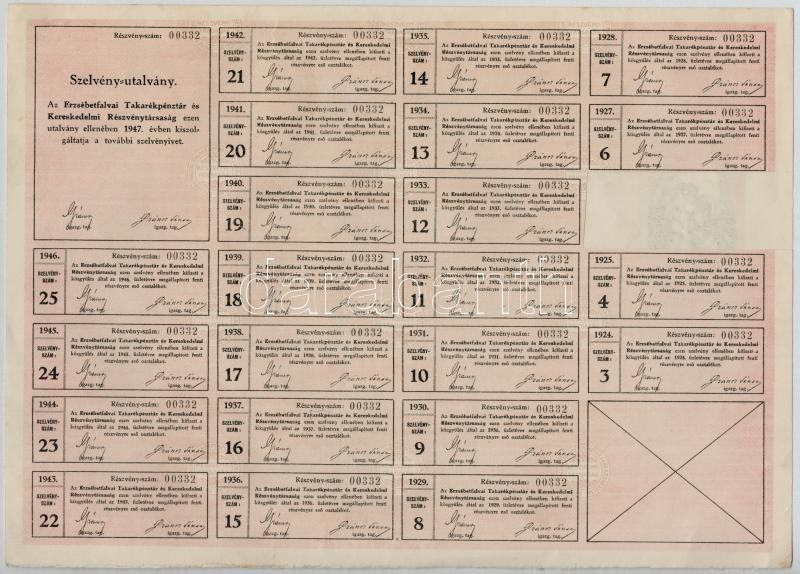 Részvény-szám: 00332
Szelvény-utalvány.
Az Erzsébetfalvai Takarékpénztár és
Kereskedelmi Részvénytársaság ezen
utalvány ellenében 1947. évben kiszol-
gáltatja a további szelvényivet.
igazg. tag.
igazg. tag.
1946.
SZELVÉNY-
SZÁM:
25
Részvény-szám: 00332
Az Erzsébetfalvai Takarékpénztár és Kereskedelmi
Részvénytársaság ezen szelvény ellenében kifizeti a
közgyülés által az 1946. üzletévre megállapitott fenti
részvényre eső osztalékot.
igazg. tag.
igazg. tag.
1945.
SZELVÉNY-
SZÁM:
24
Részvény-szám: 00332
Az Erzsébetfalvai Takarékpénztár és Kereskedelmi
Részvénytársaság ezen szelvény ellenében kifizeti a
közgyülés által az 1945. üzletévre megállapitott fenti
részvényre eső osztalékot.
igazg. tag.
igazg. tag.
1944.
SZELVÉNY-
SZÁM:
23
Részvény-szám: 00332
Az Erzsébetfalvai Takarékpénztár és Kereskedelmi
Részvénytársaság ezen szelvény ellenében kifizeti a
közgyülés által az 1944. üzletévre megállapitott fenti
részvényre eső osztalékot.
igazg. tag.
igazg. tag.
1943.
SZELVÉNY-
SZÁM:
22
Részvény-szám: 00332
Az Erzsébetfalvai Takarékpénztár és Kereskedelmi
Részvénytársaság ezen szelvény ellenében kifizeti a
közgyülés által az 1943. üzletévre megállapitott fenti
részvényre eső osztalékot.
igazg. tag.
igazg. tag.
1942.
SZELVÉNY-
SZÁM:
21
Részvény-szám: 00332
Az Erzsébetfalvai Takarékpénztár és Kereskedelmi
Részvénytársaság ezen szelvény ellenében kifizeti a
közgyülés által az 1942. üzletévre megállapitott fenti
részvényre eső osztalékot.
igazg. tag.
igazg. tag.
1941.
SZELVÉNY-
SZÁM:
20
Részvény-szám: 00332
Az Erzsébetfalvai Takarékpénztár és Kereskedelmi
Részvénytársaság ezen szelvény ellenében kifizeti a
közgyülés által az 1941. üzletévre megállapitott fenti
részvényre eső osztalékot.
igazg. tag.
igazg. tag.
1940.
SZELVÉNY-
SZÁM:
19
Részvény-szám: 00332
Az Erzsébetfalvai Takarékpénztár és Kereskedelmi
Részvénytársaság ezen szelvény ellenében kifizeti a
közgyülés által az 1940. üzletévre megállapitott fenti
részvényre eső osztalékot.
igazg. tag.
igazg. tag.
1939.
SZELVÉNY-
SZÁM:
18
Részvény-szám: 00332
Az Erzsébetfalvai Takarékpénztár és Kereskedelmi
Részvénytársaság ezen szelvény ellenében kifizeti a
közgyülés által az 1939. üzletévre megállapitott fenti
részvényre eső osztalékot.
igazg. tag.
igazg. tag.
1938.
SZELVÉNY-
SZÁM:
17
Részvény-szám: 00332
Az Erzsébetfalvai Takarékpénztár és Kereskedelmi
Részvénytársaság ezen szelvény ellenében kifizeti a
közgyülés által az 1938. üzletévre megállapitott fenti
részvényre eső osztalékot.
igazg. tag.
igazg. tag.
1937.
SZELVÉNY-
SZÁM:
16
Részvény-szám: 00332
Az Erzsébetfalvai Takarékpénztár és Kereskedelmi
Részvénytársaság ezen szelvény ellenében kifizeti a
közgyülés által az 1937. üzletévre megállapitott fenti
részvényre eső osztalékot.
igazg. tag.
igazg. tag.
1936.
SZELVÉNY-
SZÁM:
15
Részvény-szám: 00332
Az Erzsébetfalvai Takarékpénztár és Kereskedelmi
Részvénytársaság ezen szelvény ellenében kifizeti a
közgyülés által az 1936. üzletévre megállapitott fenti
részvényre eső osztalékot.
igazg. tag.
igazg. tag.
1935.
SZELVÉNY-
SZÁM:
14
Részvény-szám: 00332
Az Erzsébetfalvai Takarékpénztár és Kereskedelmi
Részvénytársaság ezen szelvény ellenében kifizeti a
közgyülés által az 1935. üzletévre megállapitott fenti
részvényre eső osztalékot.
igazg. tag.
igazg. tag.
1934.
SZELVÉNY-
SZÁM:
13
Részvény-szám: 00332
Az Erzsébetfalvai Takarékpénztár és Kereskedelmi
Részvénytársaság ezen szelvény ellenében kifizeti a
közgyülés által az 1934. üzletévre megállapitott fenti
részvényre eső osztalékot.
igazg. tag.
igazg. tag.
1933.
SZELVÉNY-
SZÁM:
12
Részvény-szám: 00332
Az Erzsébetfalvai Takarékpénztár és Kereskedelmi
Részvénytársaság ezen szelvény ellenében kifizeti a
közgyülés által az 1933. üzletévre megállapitott fenti
részvényre eső osztalékot.
igazg. tag.
igazg. tag.
1932.
SZELVÉNY-
SZÁM:
11
Részvény-szám: 00332
Az Erzsébetfalvai Takarékpénztár és Kereskedelmi
Részvénytársaság ezen szelvény ellenében kifizeti a
közgyülés által az 1932. üzletévre megállapitott fenti
részvényre eső osztalékot.
igazg. tag.
igazg. tag.
1931.
SZELVÉNY-
SZÁM:
10
Részvény-szám: 00332
Az Erzsébetfalvai Takarékpénztár és Kereskedelmi
Részvénytársaság ezen szelvény ellenében kifizeti a
közgyülés által az 1931. üzletévre megállapitott fenti
részvényre eső osztalékot.
igazg. tag.
igazg. tag.
1930.
SZELVÉNY-
SZÁM:
9
Részvény-szám: 00332
Az Erzsébetfalvai Takarékpénztár és Kereskedelmi
Részvénytársaság ezen szelvény ellenében kifizeti a
közgyülés által az 1930. üzletévre megállapitott fenti
részvényre eső osztalékot.
igazg. tag.
igazg. tag.
1929.
SZELVÉNY-
SZÁM:
8
Részvény-szám: 00332
Az Erzsébetfalvai Takarékpénztár és Kereskedelmi
Részvénytársaság ezen szelvény ellenében kifizeti a
közgyülés által az 1929. üzletévre megállapitott fenti
részvényre eső osztalékot.
igazg. tag.
igazg. tag.
1928.
SZELVÉNY-
SZÁM:
7
Részvény-szám: 00332
Az Erzsébetfalvai Takarékpénztár és Kereskedelmi
Részvénytársaság ezen szelvény ellenében kifizeti a
közgyülés által az 1928. üzletévre megállapitott fenti
részvényre eső osztalékot.
igazg. tag.
igazg. tag.
1927.
SZELVÉNY-
SZÁM:
6
Részvény-szám: 00332
Az Erzsébetfalvai Takarékpénztár és Kereskedelmi
Részvénytársaság ezen szelvény ellenében kifizeti a
közgyülés által az 1927. üzletévre megállapitott fenti
részvényre eső osztalékot.
igazg. tag.
igazg. tag.
1925.
SZELVÉNY-
SZÁM:
4
Részvény-szám: 00332
Az Erzsébetfalvai Takarékpénztár és Kereskedelmi
Részvénytársaság ezen szelvény ellenében kifizeti a
közgyülés által az 1925. üzletévre megállapitott fenti
részvényre eső osztalékot.
igazg. tag.
igazg. tag.
1924.
SZELVÉNY-
SZÁM:
3
Részvény-szám: 00332
Az Erzsébetfalvai Takarékpénztár és Kereskedelmi
Részvénytársaság ezen szelvény ellenében kifizeti a
közgyülés által az 1924. üzletévre megállapitott fenti
részvényre eső osztalékot.
igazg. tag.
igazg. tag.
darabanth